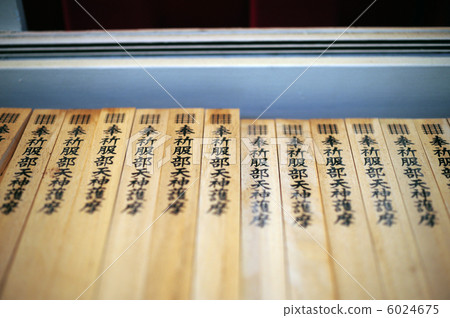 奉祈服部天神護摩
奉祈服部天神護摩
奉祈服部天神護摩
奉祈服部天神護摩
奉祈服部天神護摩
奉祈服部天神護摩
奉祈服部天神護摩
奉祈服部天神護摩
奉祈服部天神護摩
奉祈服部天神護摩
奉祈服部天神護摩
奉祈服
6024675